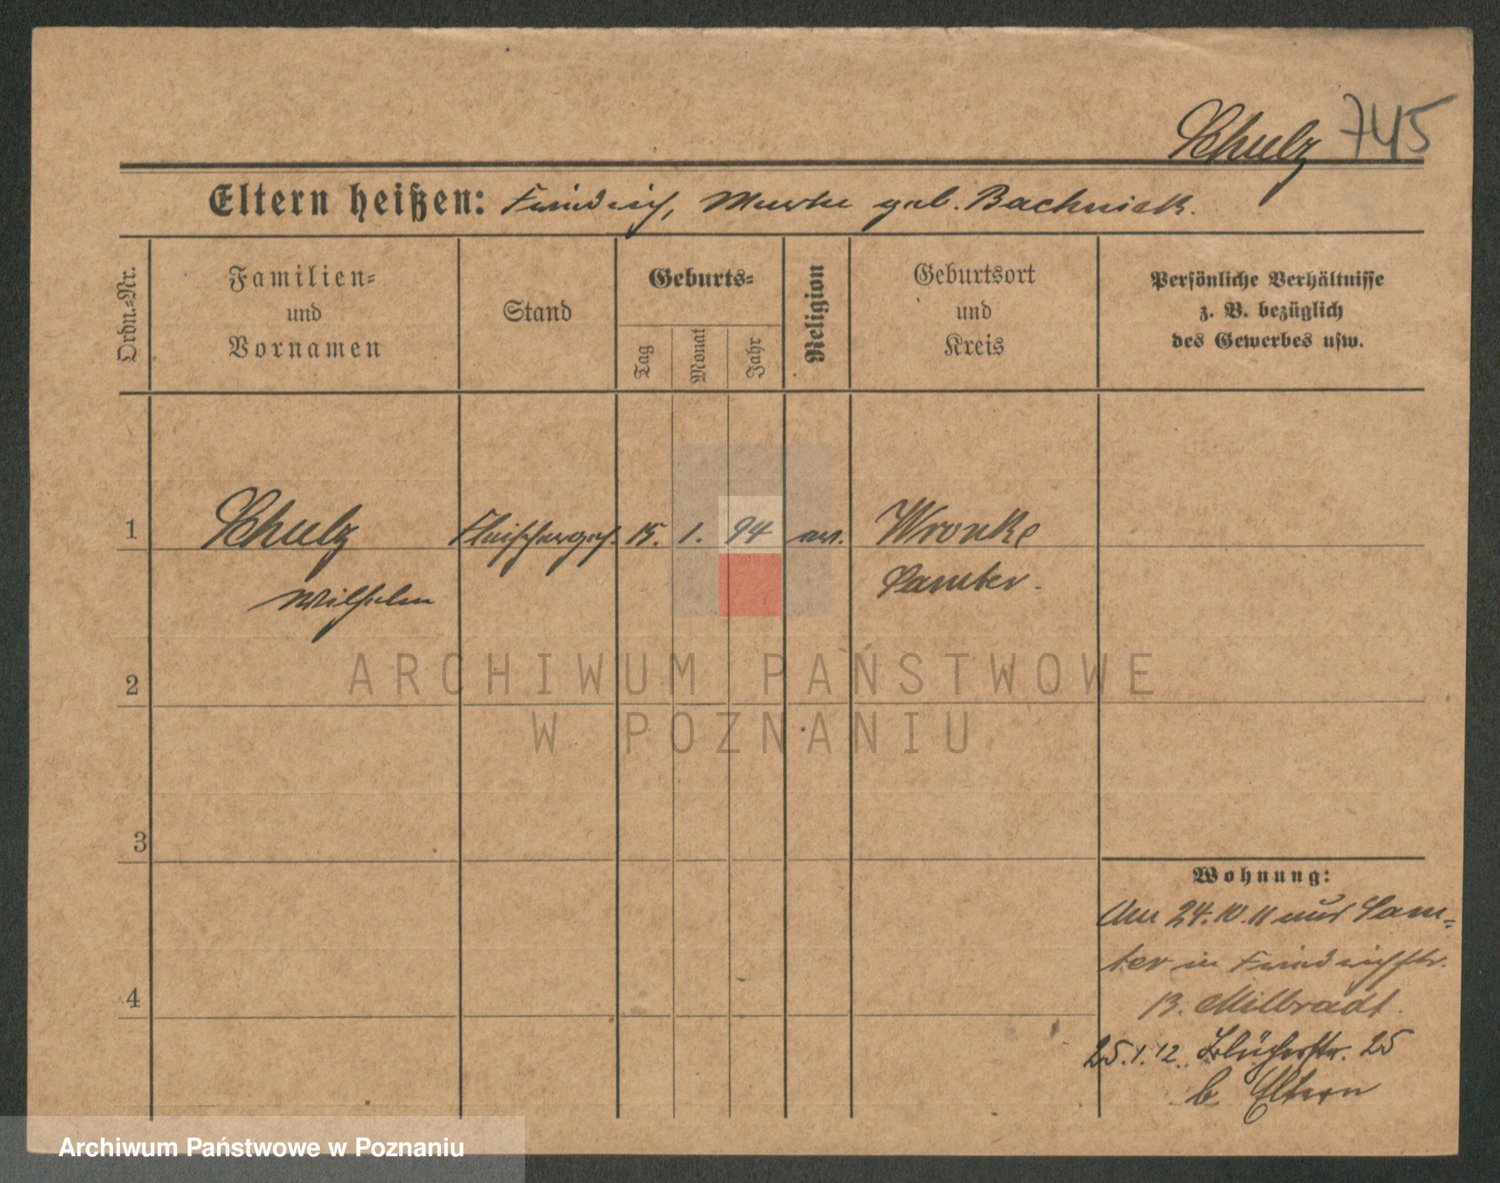 Schulz 745
Eltern heißen: Friedrich, Marta geb. Bachniak.
Ordn.-Nr.
Familien-
und
Vornamen
Stand
Geburts-
Tag
Monat
Jahr
Religion
Geburtsort
und
Kreis
Persönliche Verhältnisse
z. B. bezüglich
des Gewerbes usw.
1 Schulz Fleischerges. 15. 1. 94 ev. Wronke
Wilhelm Samter.
2
3
4
Wohnung:
Am 24.10.11 aus Sam-
ter in Friedrichstr.
13. Milbradt.
25.1.12. Blücherstr. 25
b. Eltern
ARCHIWUM PAŃSTWOWE
W POZNANIU
Archiwum Państwowe w Poznaniu